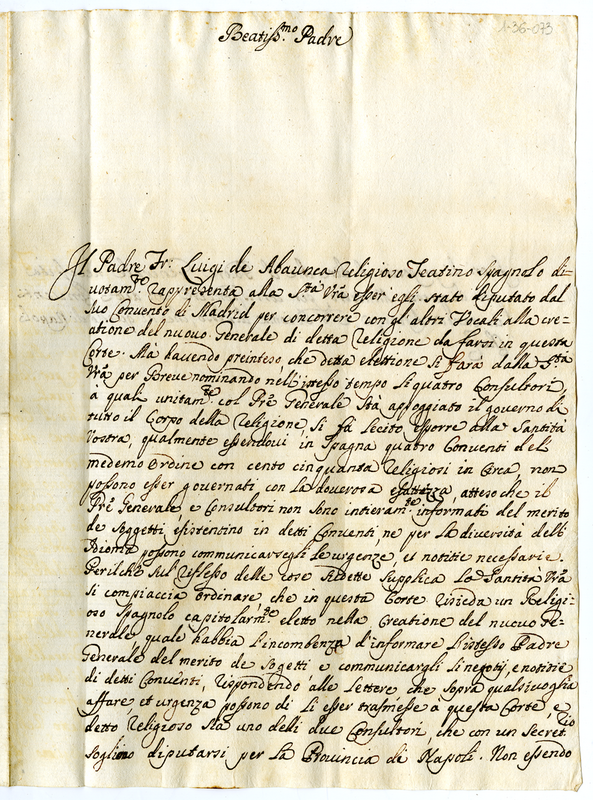 1-36-073
Beatiss.mo Padre
Il Padre Fr: Luigi de Abaunca religioso Teatino Spagnolo di=
uotam.te rappresenta alla S.ta V.ra esser egli stato diputato dal
suo Convento di Madrid per concorrere con gl'altri Vocali alla cre=
atione del nuovo Generale di detta Religione da farsi in questa
Corte. Mà havendo preinteso che detta elettione si farà dalla S.ta
V.ra per Breve nominando nell'istesso tempo li quattro Consultori,
a quali unitam.te col Pre Generale stà appoggiato il governo di
tutto il Corpo della Religione, si fà lecito esporre alla Santità
Vostra, qualmente essendovi in Spagna quattro Conventi del
medemo ordine con cento cinquanta religiosi in circa, non
possono esser governati con la doverosa esattezza, atteso che il
Pre Generale, e Consultori non sono intieram.te informati del merito
de soggetti esistentino in detti Conventi ne per la diversità dell'
Idioma possono communicarsegli le urgenze, et notitie necessarie.
Perilche sul riflesso delle cose sudette supplica la Santità V.ra
si compiaccia ordinare, che in questa Corte risieda un Religi=
oso Spagnolo capitolarm.te eletto nella Creatione del nuovo Ge=
nerale quale habbia l'incombenza d'informare l'istesso Padre
Generale del merito de sogetti e communicargli li negotij, e notitie
di detti Conventi, rispondendo alle Lettere che sopra qualsivoglia
affare et urgenza possono di lì esser trasmesse à questa Corte e
detto Religioso sia uno delli due Consultori, che con un Secret.rio
sogliono diputarsi per la Provincia di Napoli. Non essendo